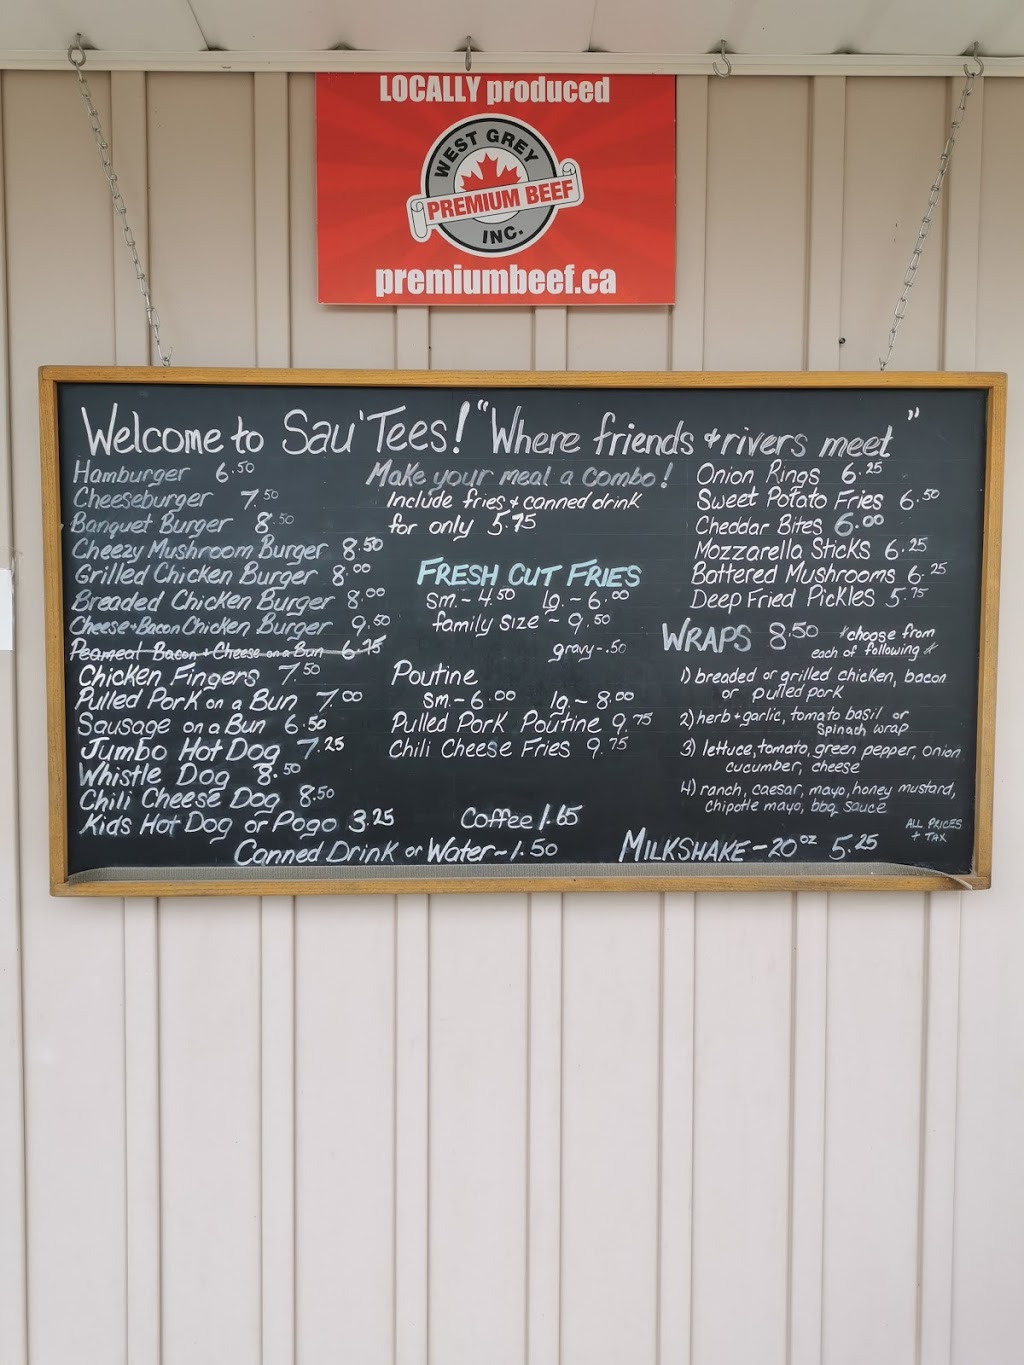 LOCALLY produced
WEST GREY
PREMIUM BEEF
INC.
premiumbeef.ca
Welcome to Sau'Tees! "Where friends + rivers meet"
Hamburger 6.50
Cheeseburger 7.50
Banquet Burger 8.50
Cheezy Mushroom Burger 8.50
Grilled Chicken Burger 8.00
Breaded Chicken Burger 8.00
Cheese + Bacon Chicken Burger 9.50
Peameal Bacon + Cheese on a Bun 6.75
Chicken Fingers 7.50
Pulled Pork on a Bun 7.00
Sausage on a Bun 6.50
Jumbo Hot Dog 7.25
Whistle Dog 8.50
Chili Cheese Dog 8.50
Kids Hot Dog or Pogo 3.25
Make your meal a combo!
Include fries + canned drink
for only 5.75
FRESH CUT FRIES
sm. - 4.50 lg. - 6.00
family size - 9.50
gravy - .50
Poutine
sm. - 6.00 lg. - 8.00
Pulled Pork Poutine 9.75
Chili Cheese Fries 9.75
Coffee 1.65
Canned Drink or Water - 1.50
Onion Rings 6.25
Sweet Potato Fries 6.50
Cheddar Bites 6.00
Mozzarella Sticks 6.25
Battered Mushrooms 6.25
Deep Fried Pickles 5.75
WRAPS 8.50 *choose from
each of following*
1) breaded or grilled chicken, bacon
or pulled pork
2) herb + garlic, tomato basil or
spinach wrap
3) lettuce, tomato, green pepper, onion
cucumber, cheese
4) ranch, caesar, mayo, honey mustard,
chipotle mayo, bbq sauce
ALL PRICES
+ TAX
MILKSHAKE - 20 oz 5.25